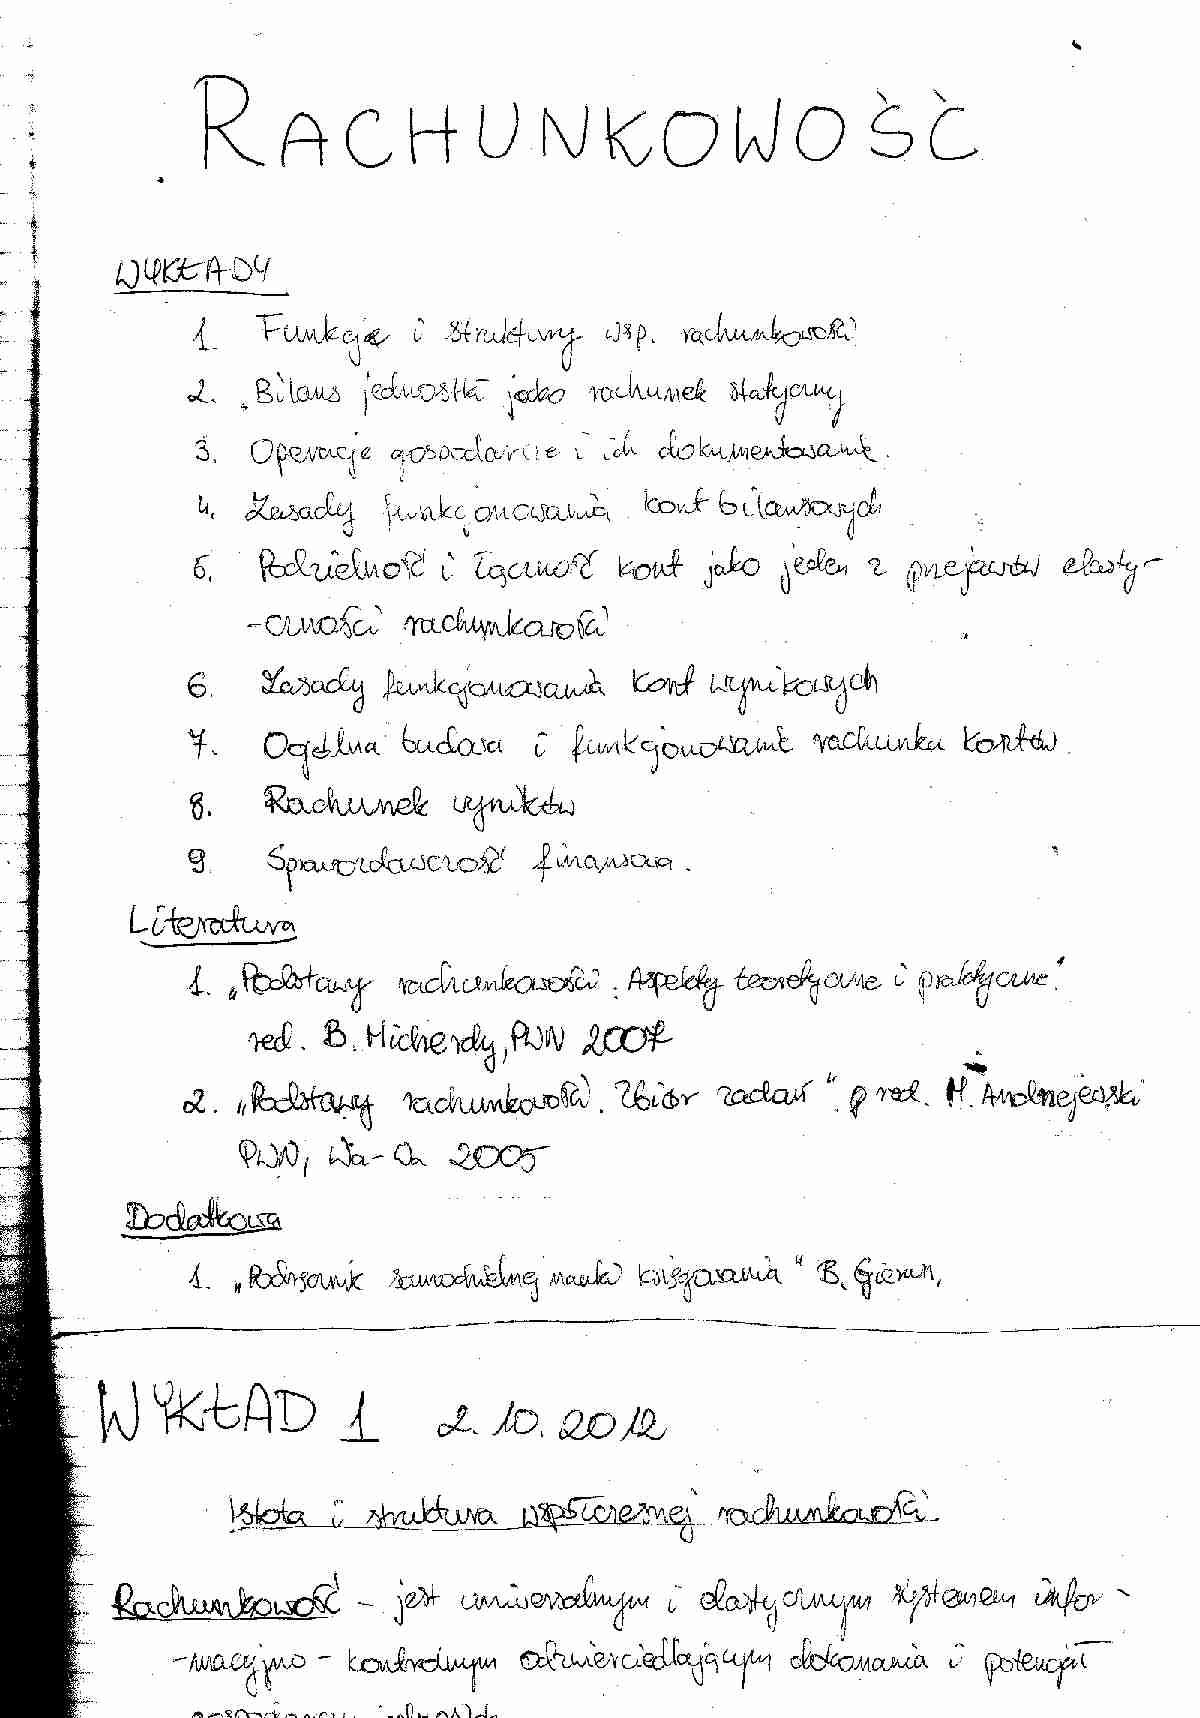 RACHUNKOWOŚĆ
WYKŁADY
1. Funkcje i struktury wsp. rachunkowości
2. Bilans jednostki jako rachunek statyczny
3. Operacje gospodarcze i ich dokumentowanie.
4. Zasady funkcjonowania kont bilansowych
5. Podzielność i łączność kont jako jeden z przejawów elasty-
-czności rachunkowości
6. Zasady funkcjonowania kont wynikowych
7. Ogólna budowa i funkcjonowanie rachunku kosztów.
8. Rachunek wyników
9. Sprawozdawczość finansowa.
Literatura
1. „Podstawy rachunkowości. Aspekty teoretyczne i praktyczne"
red. B. Micherdy, PWN 2007
2. „Podstawy rachunkowości. Zbiór zadań" p red. M. Andrzejewski
PWN, Wa-wa 2005
Dodatkowa
1. „Podręcznik samodzielnej nauki księgowania" B. Gierusz,
WYKŁAD 1 2.10.2012
Istota i struktura współczesnej rachunkowości.
Rachunkowość - jest uniwersalnym i elastycznym systemem infor-
-macyjno-kontrolnym odzwierciedlającym dokonania i potencjał